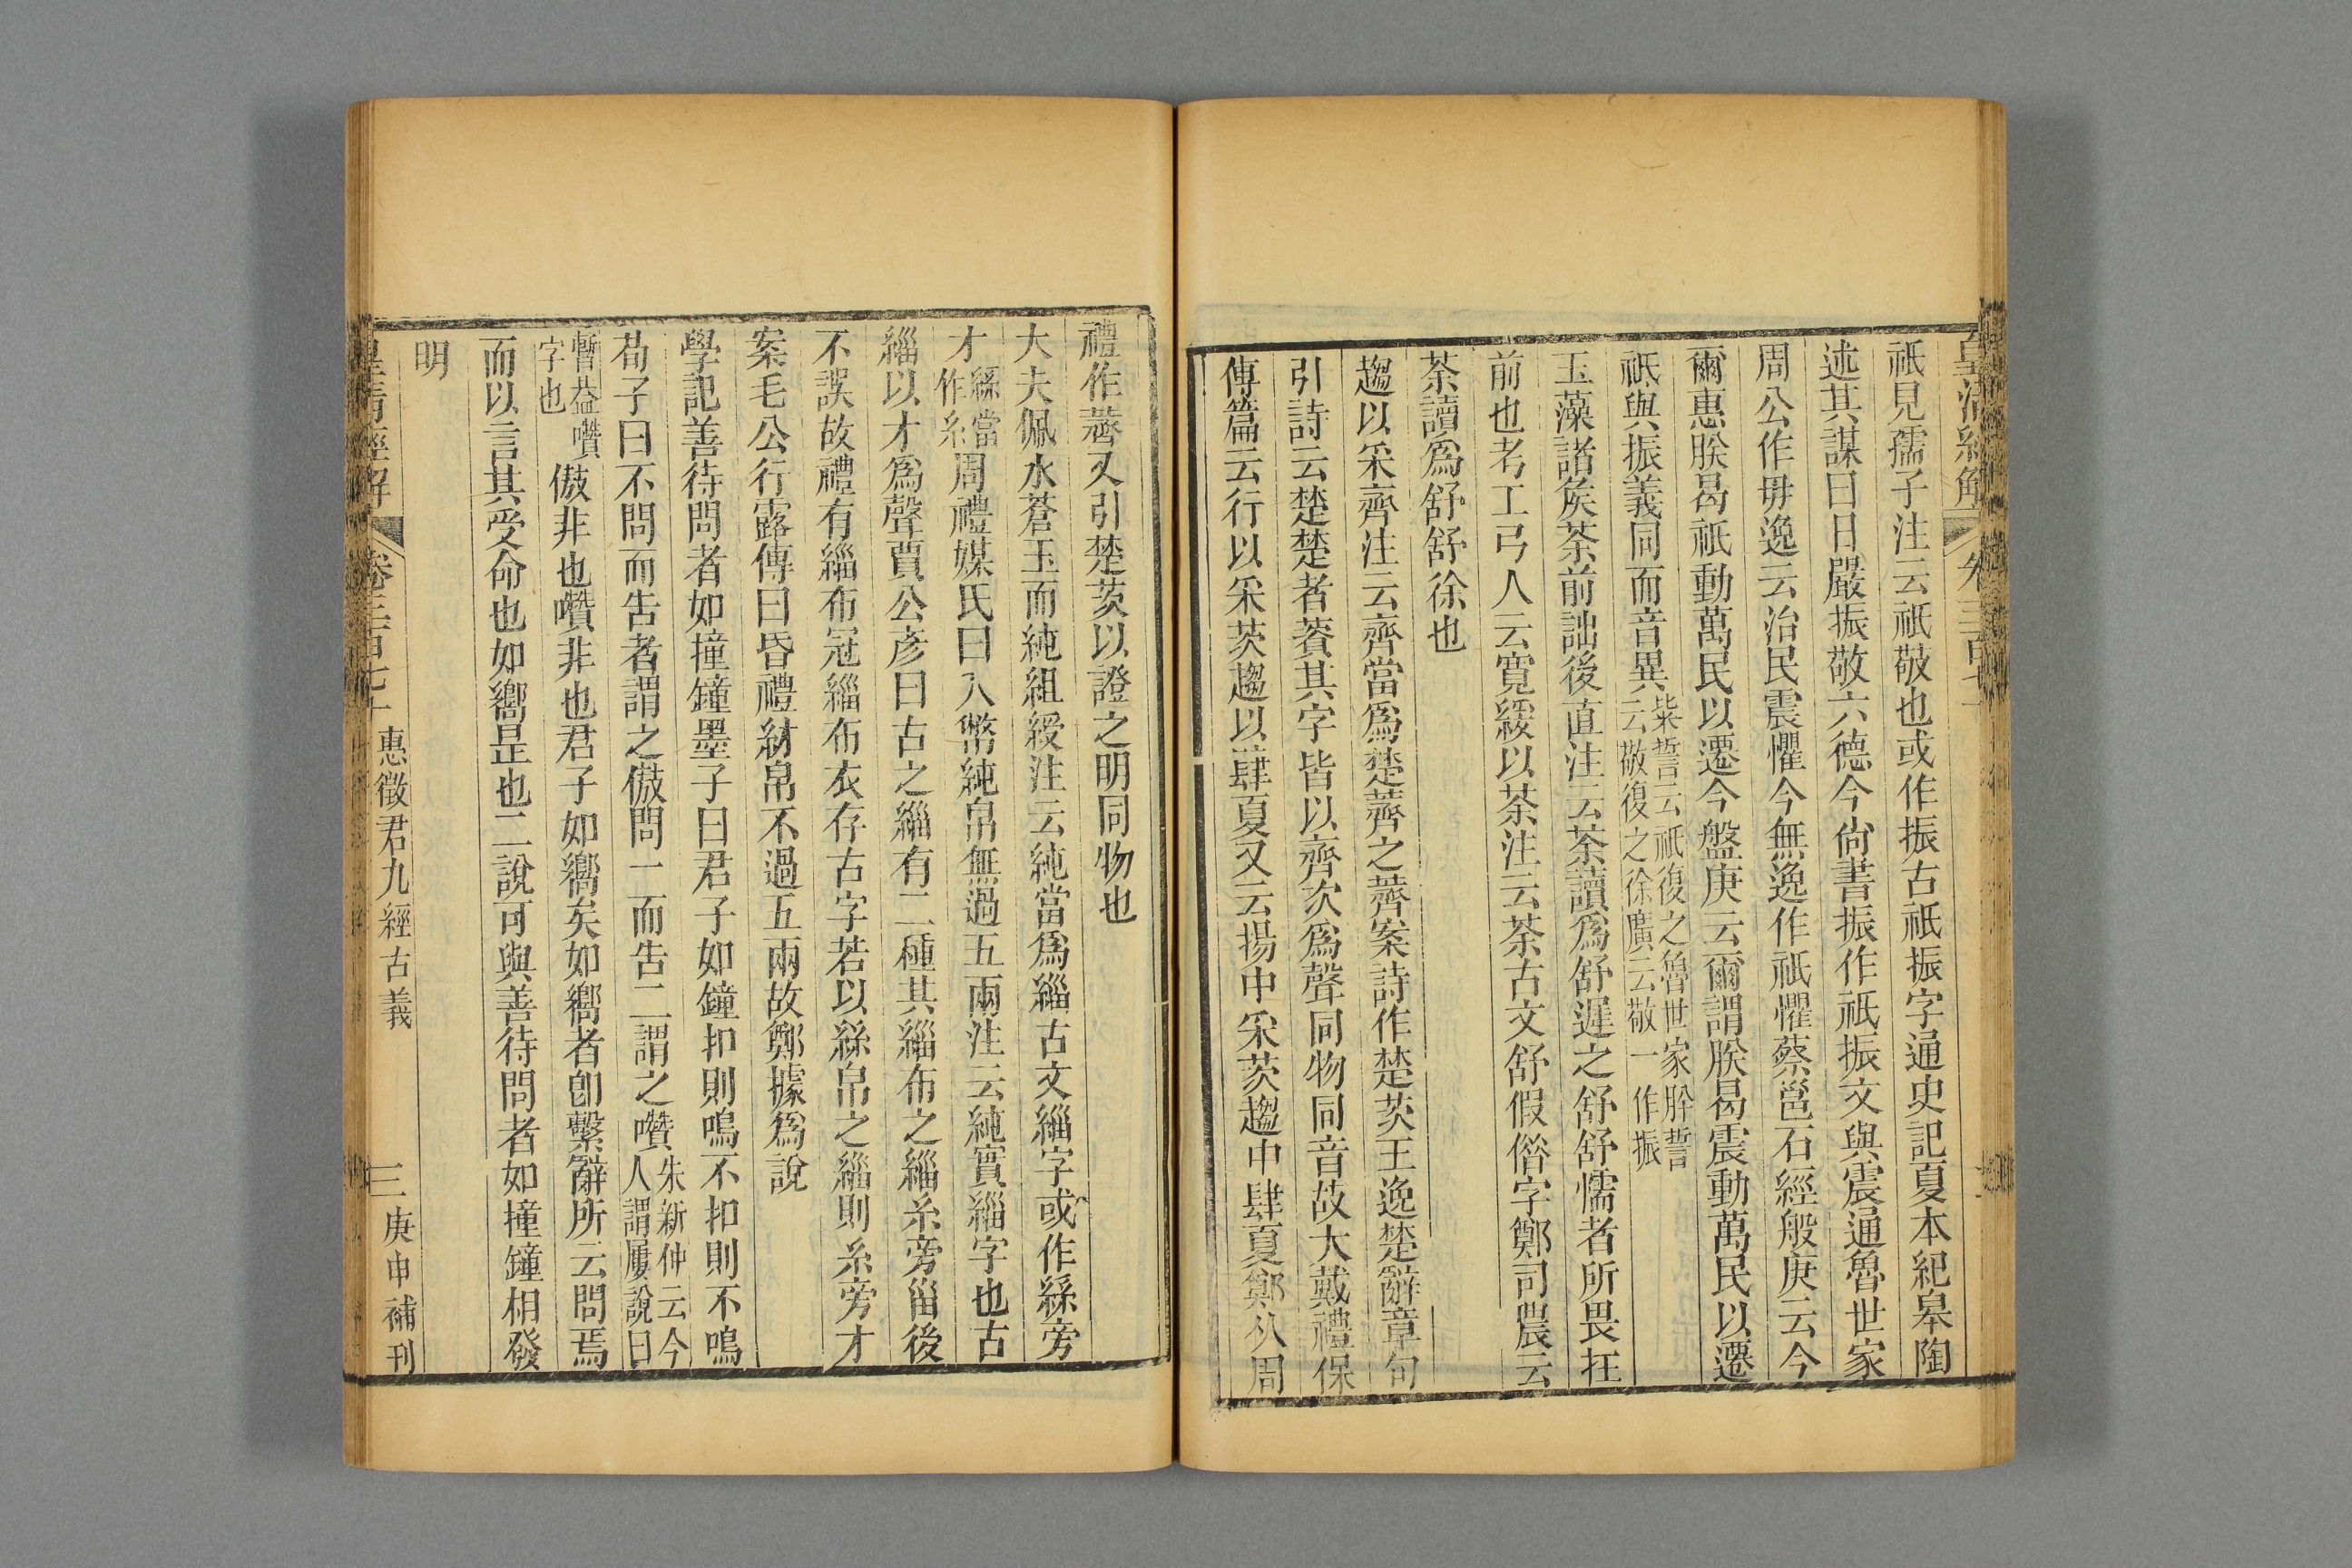 皇清經解
卷三百七十
祇見孺子注云祇敬也或作振古祇振字通史記夏本紀皋陶
述其謀曰日嚴振敬六德今尙書振作祇振文與震通魯世家
周公作毋逸云治民震懼今無逸作祇懼蔡邕石經般庚云今
爾惠朕曷祇動萬民以遷今盤庚云爾謂朕曷震動萬民以遷
祇與振義同而音異
柴誓云祇復之魯世家肸誓
云敬復之徐廣云敬一作振
玉藻諸矦荼前詘後直注云荼讀爲舒遲之舒舒懦者所畏在
前也考工弓人云寬緩以荼注云荼古文舒假偺字鄭司農云
荼讀爲舒舒徐也
趨以采齊注云齊當爲楚薺之薺案詩作楚茨王逸楚辭章句
引詩云楚楚者薋其字皆以齊次爲聲同物同音故大戴禮保
傳篇云行以采茨趨以肆夏又云揚中采茨趨中肆夏鄭从周
禮作薺又引楚茨以證之明同物也
大夫佩水蒼玉而純組綬注云純當爲緇古文緇字或作絲旁
才
絲當
作糸
周禮媒氏曰入幣純帛無過五兩注云純實緇字也古
緇以才爲聲賈公彥曰古之緇有二種其緇布之緇糸旁甾後
不誤故禮有緇布冠緇布衣存古字若以絲帛之緇則糸旁才
案毛公行露傳曰昏禮紂帛不過五兩故鄭據爲說
學記善待問者如撞鐘墨子曰君子如鐘扣則鳴不扣則不鳴
荀子曰不問而告者謂之傲問一而告二謂之囋
朱新仲云今
人謂屢說曰
暫益囋
字也
傲非也囋非也君子如嚮矣如嚮者卽繫辭所云問焉
而以言其受命也如嚮是也二說可與善待問者如撞鐘相發
明
皇清經解
卷三百七十
惠徵君九經古義
三
庚申補刊